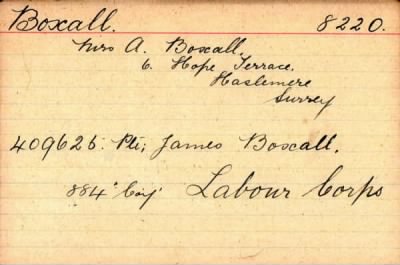 Boxall. 8220.
Mrs A. Boxall.
6. Hope Terrace.
Haslemere
Surrey
409625. Pte; James Boxall.
884 Coy Labour Corps